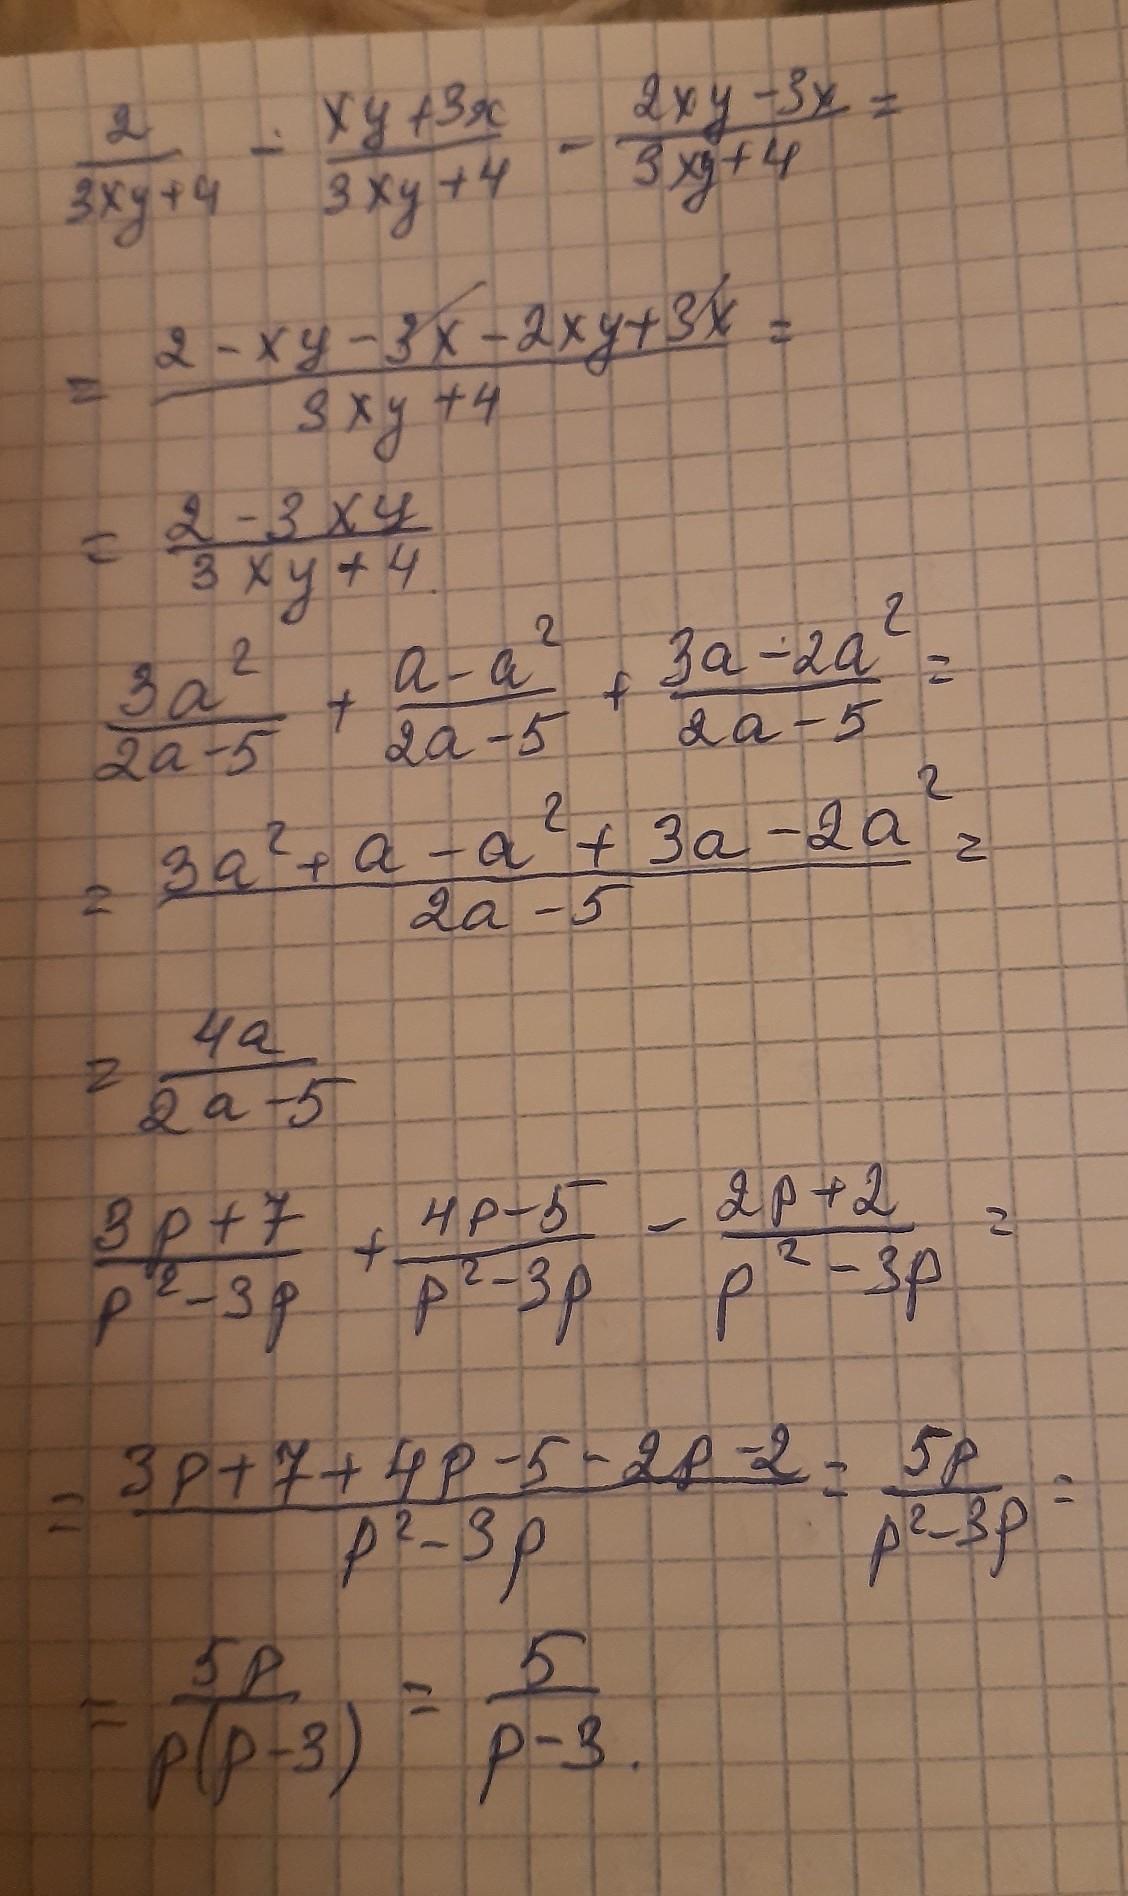 2/(3xy+4) - (xy+3x)/(3xy+4) - (2xy-3x)/(3xy+4) =
= (2-xy-3x-2xy+3x)/(3xy+4) =
= (2-3xy)/(3xy+4)
3a²/(2a-5) + (a-a²)/(2a-5) + (3a-2a²)/(2a-5) =
= (3a²+a-a²+3a-2a²)/(2a-5) =
= 4a/(2a-5)
(3p+7)/(p²-3p) + (4p-5)/(p²-3p) - (2p+2)/(p²-3p) =
= (3p+7+4p-5-2p-2)/(p²-3p) = 5p/(p²-3p) =
= 5p/(p(p-3)) = 5/(p-3).